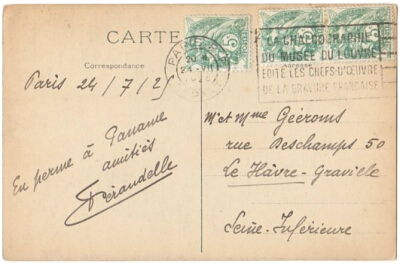 CARTE
Correspondance
PARIS
20
24
LA CHALCOGRAPHIE
DU MUSÉE DU LOUVRE
ÉDITE LES CHEFS-D'ŒUVRE
DE LA GRAVURE FRANÇAISE
Paris 24/7/2
En perme à Paname
amitiés
Mr et Mme Gééroms
rue Deschamps 50
Le Hâvre-Graville
Seine-Inférieure